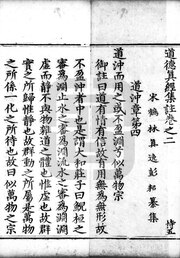 道德真經集註卷之二
宋鶴林真逸彭耜纂集
道沖章第四
道沖而用之或不盈淵乎似萬物宗
御註曰道有情有信故有用無為無形故
不盈沖者中也是謂太和莊子曰鯢桓之
審為淵止水之審為淵流水之審為淵
虛而靜不與物雜道之體也惟虛也故群
實之所歸惟靜也故群動之所屬是萬物
之所係一化之所待也故曰似萬物之宗